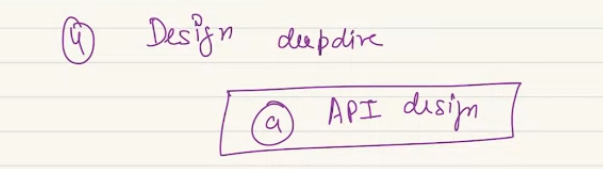 4 Design deepdive
a API design